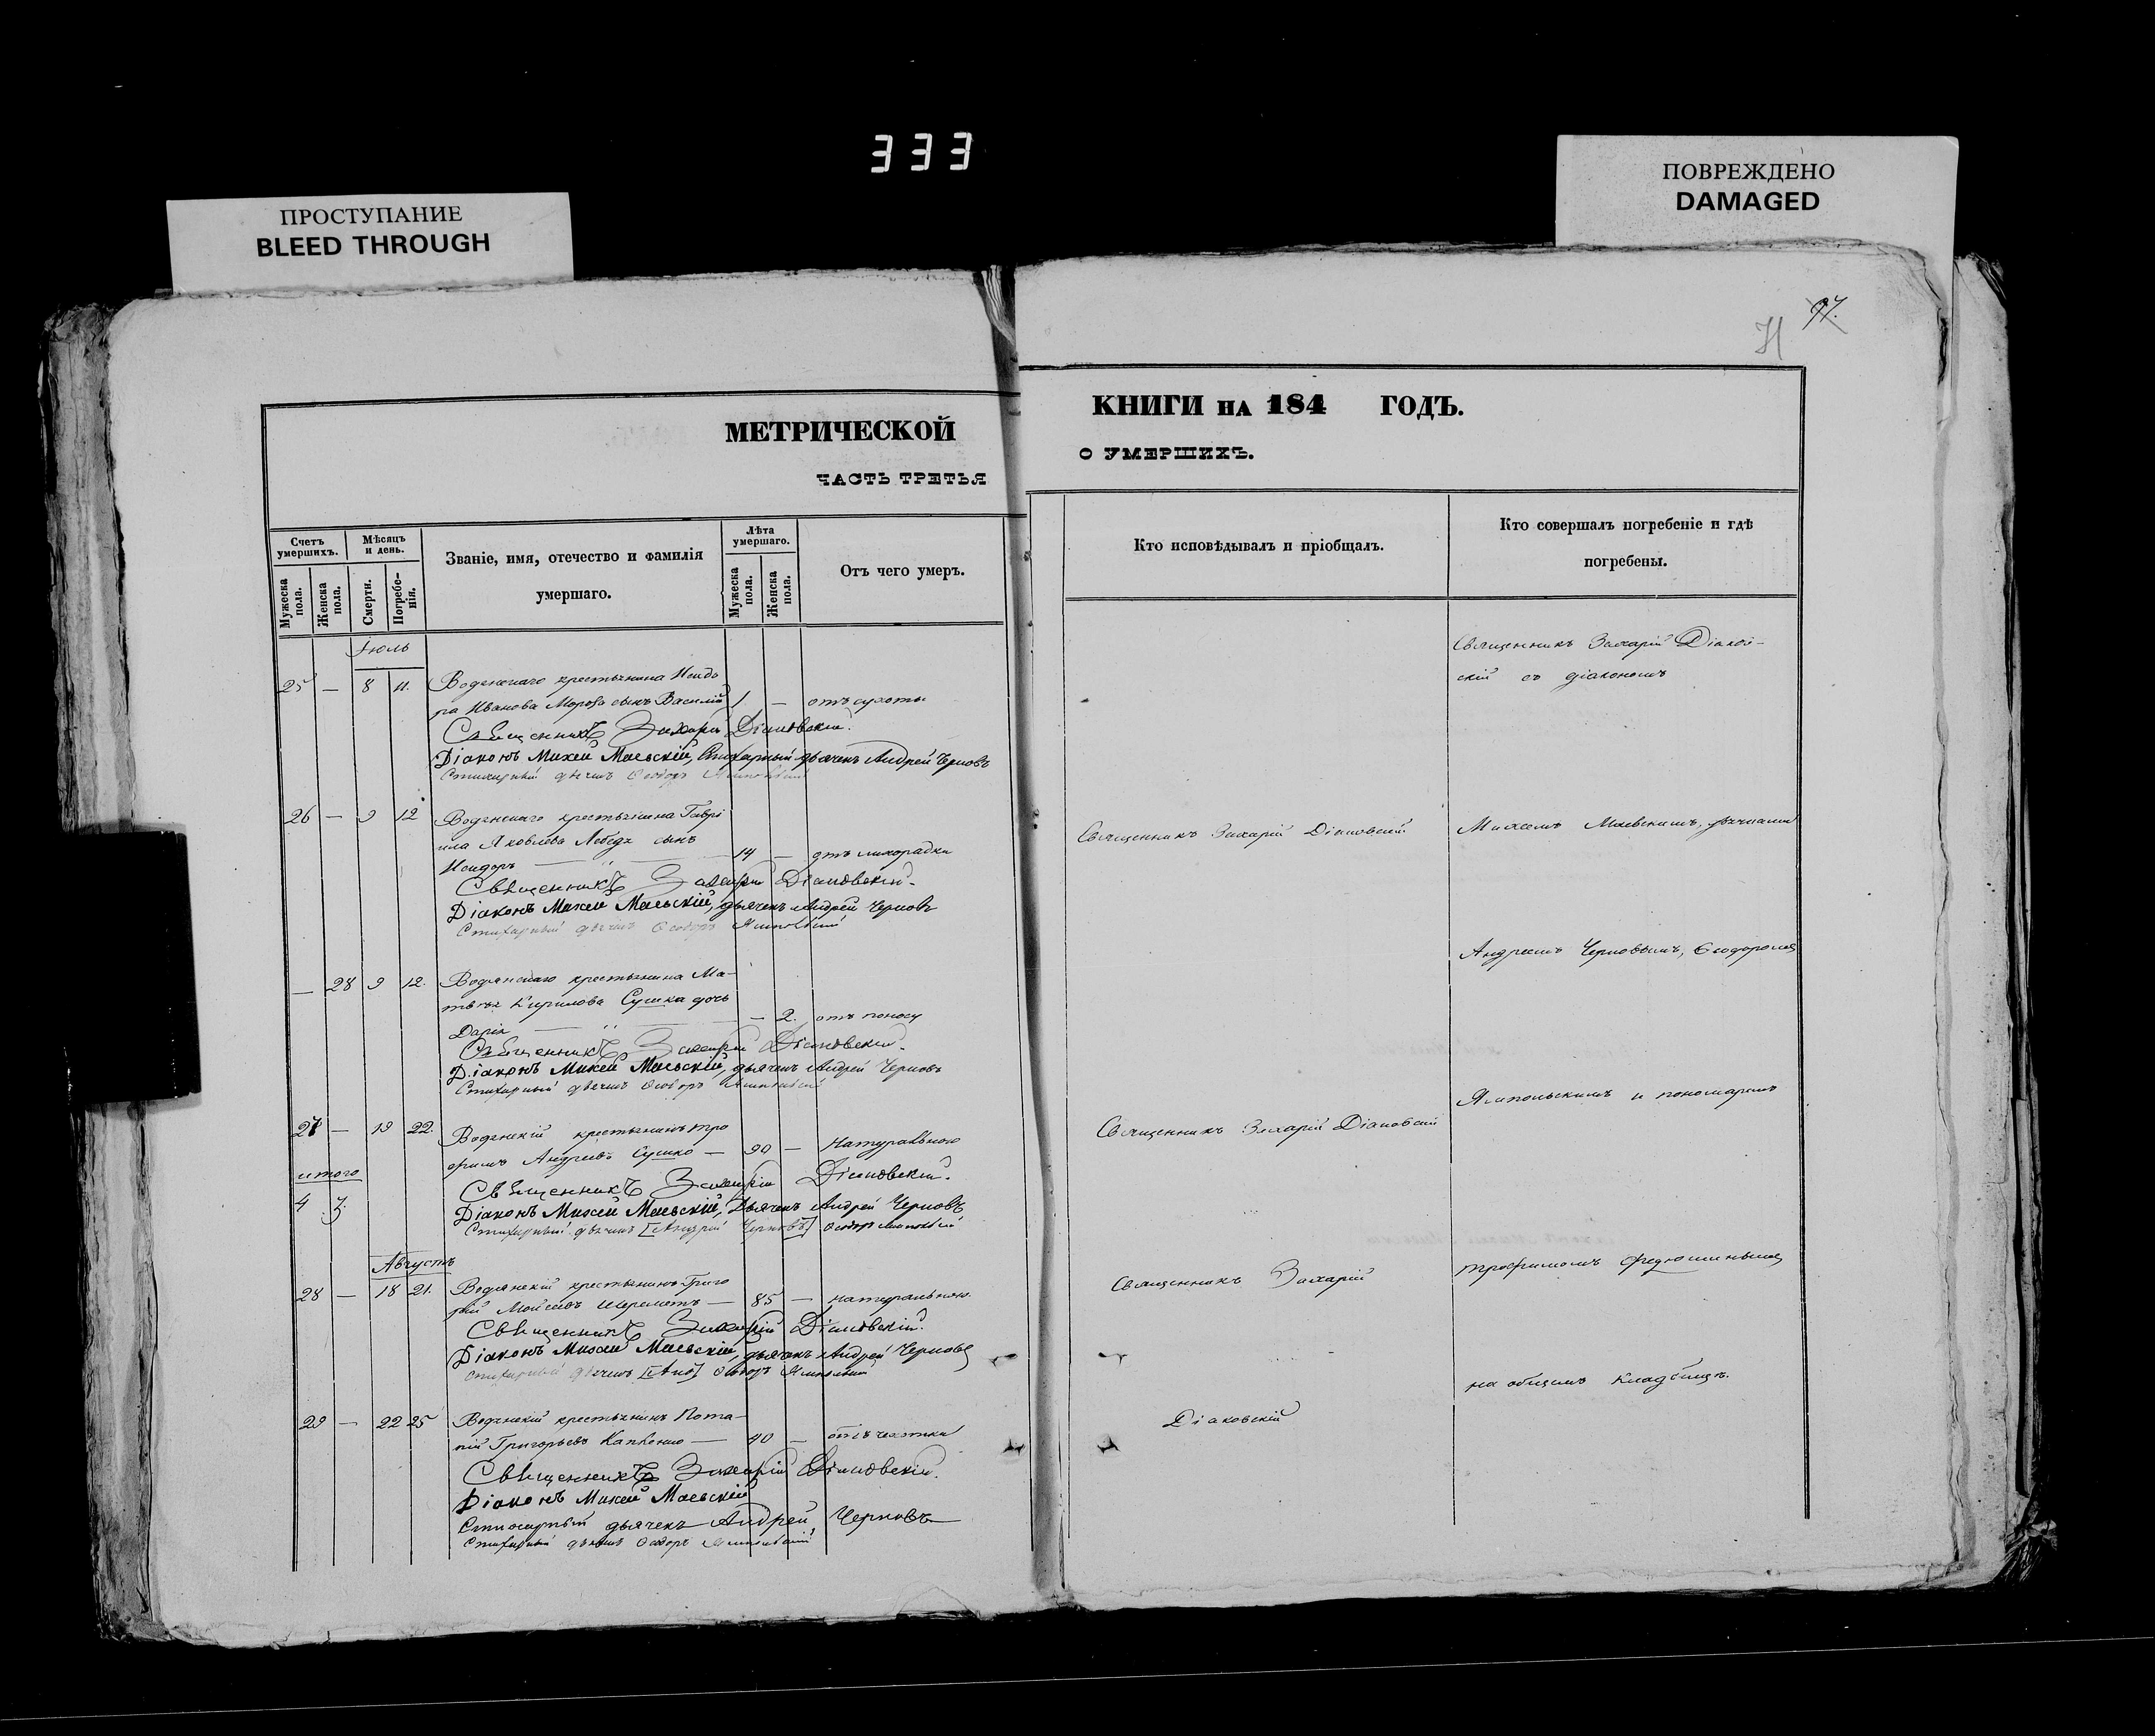 333
ПРОСТУПАНИЕ
BLEED THROUGH
ПОВРЕЖДЕНО
DAMAGED
97.
МЕТРИЧЕСКОЙ
ЧАСТЬ ТРЕТЬЯ
Счетъ умершихъ.
Мѣсяцъ и день.
Званіе, имя, отечество и фамилія умершаго.
Лѣта умершаго.
Отъ чего умеръ.
Мужеска пола.
Женска пола.
Смерти.
Погребе-
нія.
Мужеска пола.
Женска пола.
Іюль
25 — 8 11. Водянскаго крестьянина Исидо
ра Иванова Мороза сынъ Василій 1 — отъ сухоты
Священникъ Захарій Діаковскій.
Діаконъ Михей Маевскій, Стихарный дьячекъ Андрей Черновъ
Стихарный дьячекъ Ѳеодоръ Ямпольскій
26 — 9 12 Водянскаго крестьянина Гаврі
ила Яковлева Лебедя сынъ
Исидоръ — 14 — отъ лихорадки
Священникъ Захарій Діаковскій.
Діаконъ Михей Маевскій, дьячекъ Андрей Черновъ
Стихарный дьячекъ Ѳеодоръ Ямпольскій
— 28 9 12. Водянскаго крестьянина Ма-
твея Кирилова Сушка дочь
Дарія — — 2. отъ поносу
Священникъ Захарій Діаковскій.
Діаконъ Михей Маевскій, дьячекъ Андрей Черновъ
Стихарный дьячекъ Ѳеодоръ Ямпольскій
27 — 19 22. Водянскій крестьянинъ Тро
фимъ Андреевъ Сушко — 90 — натуральною
итого
4 3.
Священникъ Захарій Діаковскій.
Діаконъ Михей Маевскій, Дьячекъ Андрей Черновъ
Стихарный дьячекъ [Андрей Черновъ] Ѳеодоръ Ямпольскій
Августъ
28 — 18 21. Водянскій крестьянинъ Григо
рій Моисеевъ Шереметъ — 85 — натуральною.
Священникъ Захарій Діаковскій.
Діаконъ Михей Маевскій, дьячекъ Андрей Черновъ
Стихарный дьячекъ [Анд] Ѳеодоръ Ямпольскій
29 — 22 25 Водянскій крестьянинъ Пота-
пій Григорьевъ — 40 — отъ чахотки
Священникъ Захарій Діаковскій.
Діаконъ Михей Маевскій
Стихарный дьячекъ Андрей Черновъ
Стихарный дьячекъ Ѳеодоръ Ямпольскій
КНИГИ НА 184 ГОДЪ.
О УМЕРШИХЪ.
Кто исповѣдывалъ и пріобщалъ.
Кто совершалъ погребеніе и гдѣ
погребены.
Священникъ Захарій Діаков-
скій съ діакономъ
Священникъ Захарій Діаковскій
Михеемъ Маевскимъ, дьячками
Андреемъ Черновымъ, Ѳеодоромъ
Ямпольскимъ и пономаремъ
Священникъ Захарій Діаковскій
Священникъ Захарій
Трофимомъ Федюшинымъ
на общемъ кладбищѣ.
Діаковскій